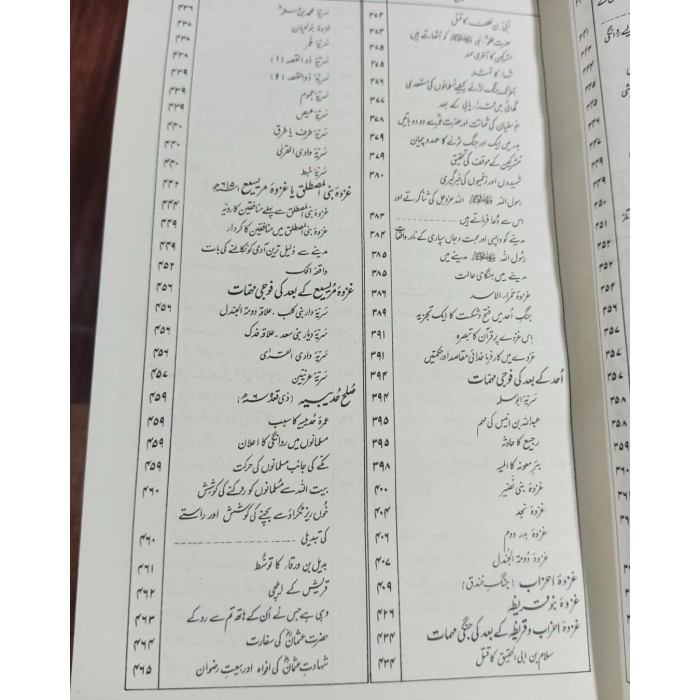 ابی بن خلف کا قتل ۳۷۳
حضرت طلحہؓ نبی ﷺ کو اٹھاتے ہیں ۳۷۴
مشرکین کا آخری حملہ ۳۷۵
شہداء کا مُثلہ ۳۷۵
آخر تک جنگ لڑنے کیلئے مسلمانوں کی مستعدی ۳۷۶
گھاٹی میں قرار یابی کے بعد ۳۷۷
ابو سفیان کی شماتت اور حضرت عمرؓ سے دو دو باتیں ۳۷۸
بدر میں ایک اور جنگ لڑنے کا عہد و پیمان ۳۷۹
مشرکین کے موقف کی تحقیق ۳۷۹
شہیدوں اور زخمیوں کی خبر گیری ۳۸۰
رسول اللہ ﷺ اللہ عزوجل کی ثنا کرتے اور
اس سے دُعا فرماتے ہیں ۳۸۳
مدینے کو واپسی اور محبت و جاں سپاری کے نادر واقعات ۳۸۴
رسول اللہ ﷺ مدینے میں ۳۸۵
مدینے میں ہنگامی حالت ۳۸۵
غزوۂ حمراء الاسد ۳۸۶
جنگِ اُحد میں فتح و شکست کا ایک تجزیہ ۳۸۹
اس غزوے پر قرآن کا تبصرہ ۳۹۱
غزوے میں کار فرما خدائی مقاصد اور حکمتیں ۳۹۱
اُحد کے بعد کی فوجی مہمات ۳۹۴
سَریّۂ ابوسلمہ ۳۹۴
عبداللہ بن انیس کی مہم ۳۹۵
رجیع کا حادثہ ۳۹۵
بئر معونہ کا المیہ ۳۹۸
غزوۂ بنی نضیر ۴۰۰
غزوۂ نجد ۴۰۴
غزوۂ بدر دوم ۴۰۶
غزوۂ دُومۃ الجندل ۴۰۷
غزوۂ احزاب (جنگِ خندق) ۴۰۹
غزوۂ بنو قریظہ ۴۲۶
غزوۂ احزاب و قریظہ کے بعد کی جنگی مہمات ۴۳۴
سلام بن ابی الحقیق کا قتل ۴۳۴
سَریّۂ محمد بن مسلمہؓ ۴۳۶
غزوۂ بنو لحیان ۴۳۷
سَریّۂ غمر ۴۳۸
سَریّۂ ذوالقصہ (۱) ۴۳۸
سَریّۂ ذوالقصہ (۲) ۴۳۸
سَریّۂ جموم ۴۳۹
سَریّۂ عیص ۴۳۹
سَریّۂ طرف یا طرق ۴۴۰
سَریّۂ وادی القریٰ ۴۴۰
سَریّۂ خبط ۴۴۰
غزوۂ بنی المصطلق یا غزوۂ مریسیع ۴۴۲
غزوۂ بنی المصطلق سے پہلے منافقین کا رویہ ۴۴۴
غزوۂ بنی المصطلق میں منافقین کا کردار ۴۴۹
مدینے سے ذلیل ترین آدمی کو نکالنے کی بات ۴۴۹
واقعۂ افک ۴۵۲
غزوۂ مریسیع کے بعد کی فوجی مہمات ۴۵۶
سَریّۂ دیار بنی کلب۔ علاقہ دومۃ الجندل ۴۵۶
سَریّۂ دیار بنی سعد۔ علاقہ فدک ۴۵۶
سَریّۂ وادی القریٰ ۴۵۶
سَریّۂ عرنیین ۴۵۷
صُلح حُدیبیہ (ذی قعدہ ۶ ھ) ۴۵۹
عمرۂ حدیبیہ کا سبب ۴۵۹
مسلمانوں میں روانگی کا اعلان ۴۵۹
مکے کی جانب مسلمانوں کی حرکت ۴۵۹
بیت اللہ سے مسلمانوں کو روکنے کی کوشش ۴۶۰
خوں ریز ٹکراؤ سے بچنے کی کوشش اور راستے
کی تبدیلی ۴۶۰
بدیل بن ورقار کا توسُّط ۴۶۱
قریش کے ایلچی ۴۶۲
وہی ہے جس نے اُن کے ہاتھ تم سے روکے ۴۶۳
حضرت عثمانؓ کی سفارت ۴۶۴
شہادتِ عثمانؓ کی افواہ اور بیعتِ رضوان ۴۶۵